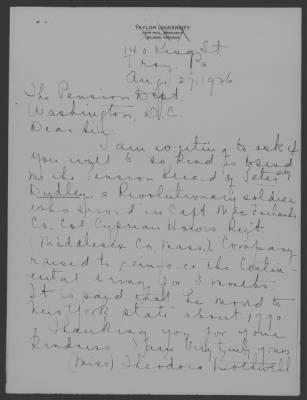 TAYLOR UNIVERSITY
UPLAND, INDIANA
140 King St.
Troy, Pa
Aug. 27, 1926
The Pension Dept.
Washington, D.C.
Dear Sir,
I am writing to ask if
you will be so kind to send
me the Pension Record of Peter
Dudley, a Revolutionary soldier
who served in Capt. McFarland's
Co. Col. Cyprian Howes Regt.
(Middlesex Co. Mass.). Company
raised to reinforce the Contin-
ental Army for 3 months.
It is said that he moved to
New York state about 1790
Thanking you for your
kindness I am Very truly yours
(Miss) Theodora Bothwell